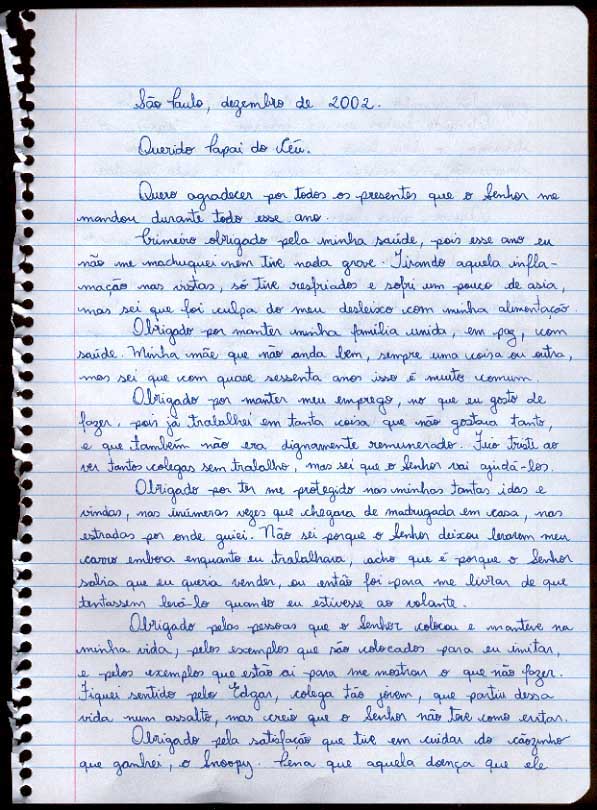 São Paulo, dezembro de 2002.
Querido Papai do Céu.
Quero agradecer por todos os presentes que o Senhor me
mandou durante todo esse ano.
Primeiro obrigado pela minha saúde, pois esse ano eu
não me machuquei nem tive nada grave. Tirando aquela infla-
mação nas vistas, só tive resfriados e sofri um pouco de asia,
mas sei que foi culpa do meu desleixo com minha alimentação.
Obrigado por manter minha família unida, em paz, com
saúde. Minha mãe que não anda bem, sempre uma coisa ou outra,
mas sei que com quase sessenta anos isso é muito comum.
Obrigado por manter meu emprego, no que eu gosto de
fazer, pois já trabalhei em tanta coisa que não gostava tanto,
e que também não era dignamente remunerado. Fico triste ao
ver tantos colegas sem trabalho, mas sei que o Senhor vai ajudá-los.
Obrigado por ter me protegido nas minhas tantas idas e
vindas, nas inúmeras vezes que chegava de madrugada em casa, nas
estradas por onde guiei. Não sei porque o Senhor deixou levarem meu
carro embora enquanto eu trabalhava, acho que é porque o Senhor
sabia que eu queria vender, ou então foi para me livrar de que
tentassem levá-lo quando eu estivesse ao volante.
Obrigado pelas pessoas que o Senhor colocou e manteve na
minha vida, pelos exemplos que são colocados para eu imitar,
e pelos exemplos que estão aí para me mostrar o que não fazer.
Fiquei sentido pelo Edgar, colega tão jovem, que partiu dessa
vida num assalto, mas creio que o Senhor não teve como evitar.
Obrigado pela satisfação que tive em cuidar do cãozinho
que ganhei, o Snoopy. Pena que aquela doença que ele